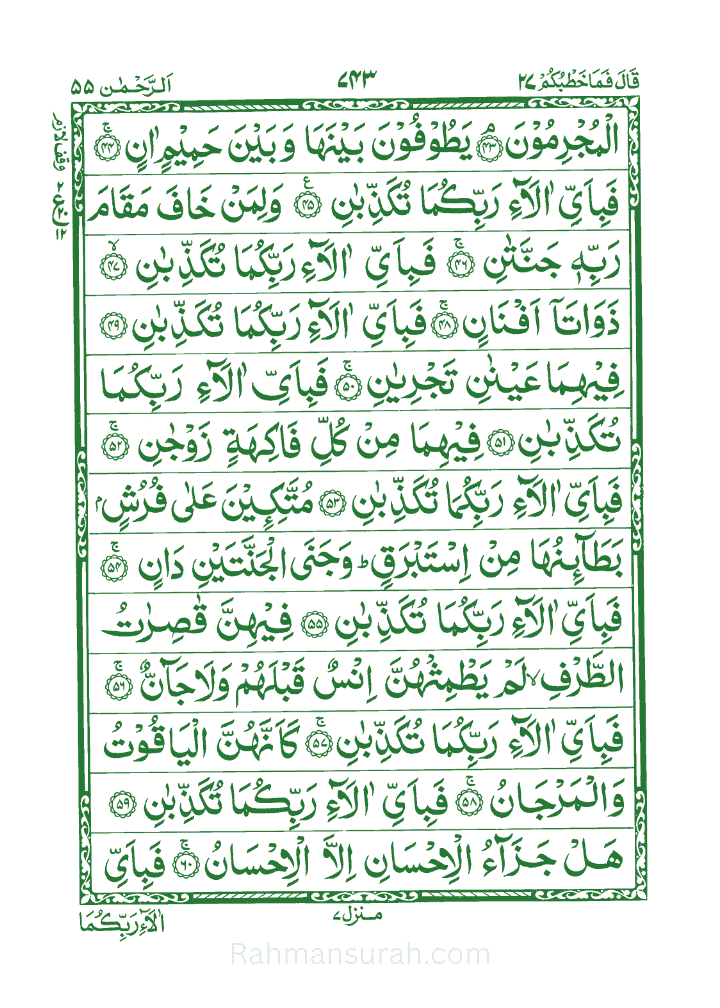 قَالَ فَمَا خَطْبُكُمْ ٢٧ ٧٤٣ اَلرَّحْمٰن ٥٥
الْمُجْرِمُوْنَ ۘ﴿۴۳﴾ يَطُوْفُوْنَ بَيْنَهَا وَبَيْنَ حَمِيْمٍ اٰنٍ ۚ﴿۴۴﴾
فَبِاَيِّ اٰلَآءِ رَبِّكُمَا تُكَذِّبٰنِ ﴿۴۵﴾ ع وَلِمَنْ خَافَ مَقَامَ
رَبِّهٖ جَنَّتٰنِ ۚ﴿۴۶﴾ فَبِاَيِّ اٰلَآءِ رَبِّكُمَا تُكَذِّبٰنِ ۙ﴿۴۷﴾
ذَوَاتَاۤ اَفْنَانٍ ۚ﴿۴۸﴾ فَبِاَيِّ اٰلَآءِ رَبِّكُمَا تُكَذِّبٰنِ ﴿۴۹﴾
فِيْهِمَا عَيْنٰنِ تَجْرِيٰنِ ۚ﴿۵۰﴾ فَبِاَيِّ اٰلَآءِ رَبِّكُمَا
تُكَذِّبٰنِ ﴿۵۱﴾ فِيْهِمَا مِنْ كُلِّ فَاكِهَةٍ زَوْجٰنِ ۚ﴿۵۲﴾
فَبِاَيِّ اٰلَآءِ رَبِّكُمَا تُكَذِّبٰنِ ﴿۵۳﴾ مُتَّكِـِٕيْنَ عَلٰى فُرُشٍۭ
بَطَآئِنُهَا مِنْ اِسْتَبْرَقٍ ؕ وَجَنَى الْجَنَّتَيْنِ دَانٍ ۚ﴿۵۴﴾
فَبِاَيِّ اٰلَآءِ رَبِّكُمَا تُكَذِّبٰنِ ﴿۵۵﴾ فِيْهِنَّ قٰصِرٰتُ
الطَّرْفِ ۙ لَمْ يَطْمِثْهُنَّ اِنْسٌ قَبْلَهُمْ وَلَا جَآنٌّ ۚ﴿۵۶﴾
فَبِاَيِّ اٰلَآءِ رَبِّكُمَا تُكَذِّبٰنِ ۚ﴿۵۷﴾ كَاَنَّهُنَّ الْيَاقُوْتُ
وَالْمَرْجَانُ ۚ﴿۵۸﴾ فَبِاَيِّ اٰلَآءِ رَبِّكُمَا تُكَذِّبٰنِ ﴿۵۹﴾
هَلْ جَزَآءُ الْاِحْسَانِ اِلَّا الْاِحْسَانُ ۚ﴿۶۰﴾ فَبِاَيِّ
منزل ٧
اٰلَآءِ رَبِّكُمَا
Rahmansurah.com